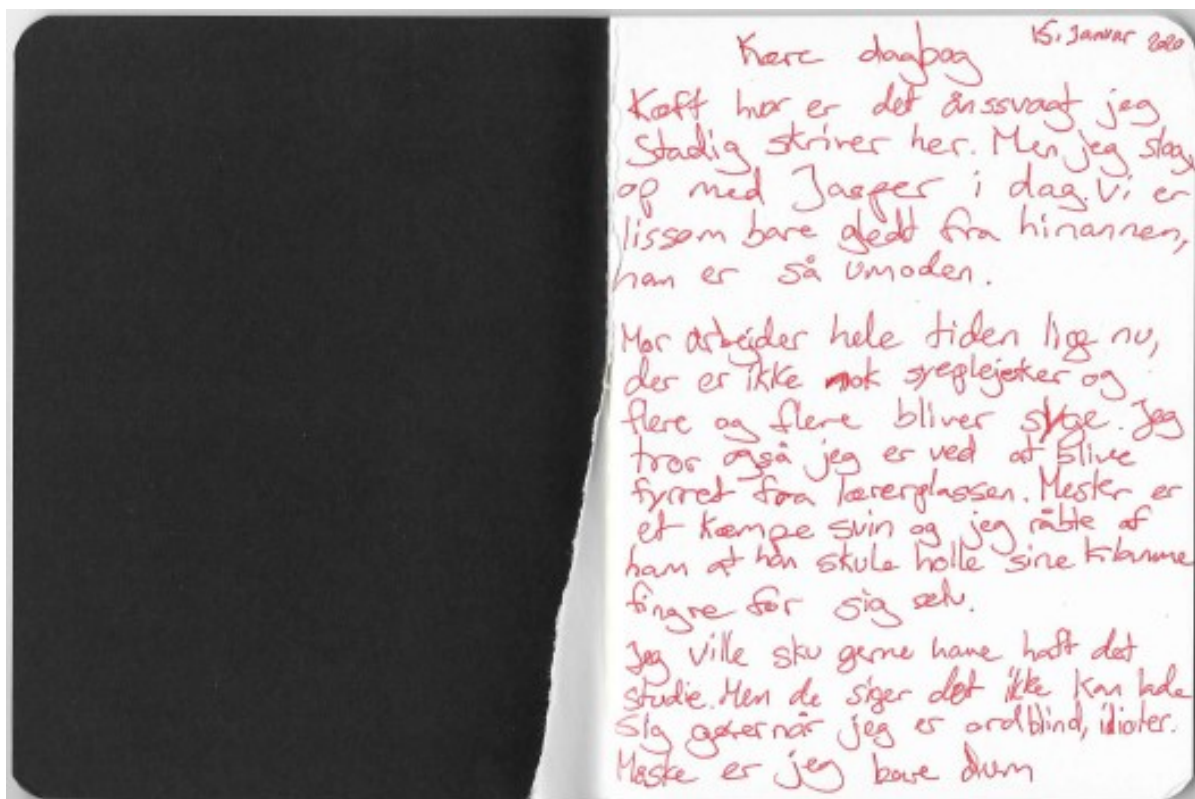 15. Januar 2020
Kære dagbog
Kæft hvor er det ånssvagt jeg
stadig skriver her. Men jeg slog
op med Jasper i dag. Vi er
lissom bare gledt fra hinannen,
han er så umoden.
Mor arbejder hele tiden lige nu,
der er ikke nok syeplejesker og
flere og flere bliver syge. Jeg
tror også jeg er ved at blive
fyrret fra lærerplassen. Mester er
et kæmpe svin og jeg råbte af
ham at han skule holle sine klamme
fingre for sig selv.
Jeg ville sku gerne have haft det
studie. Men de siger det ikke kan lade
sig gører når jeg er ordblind, idioter.
Måske er jeg bare dum